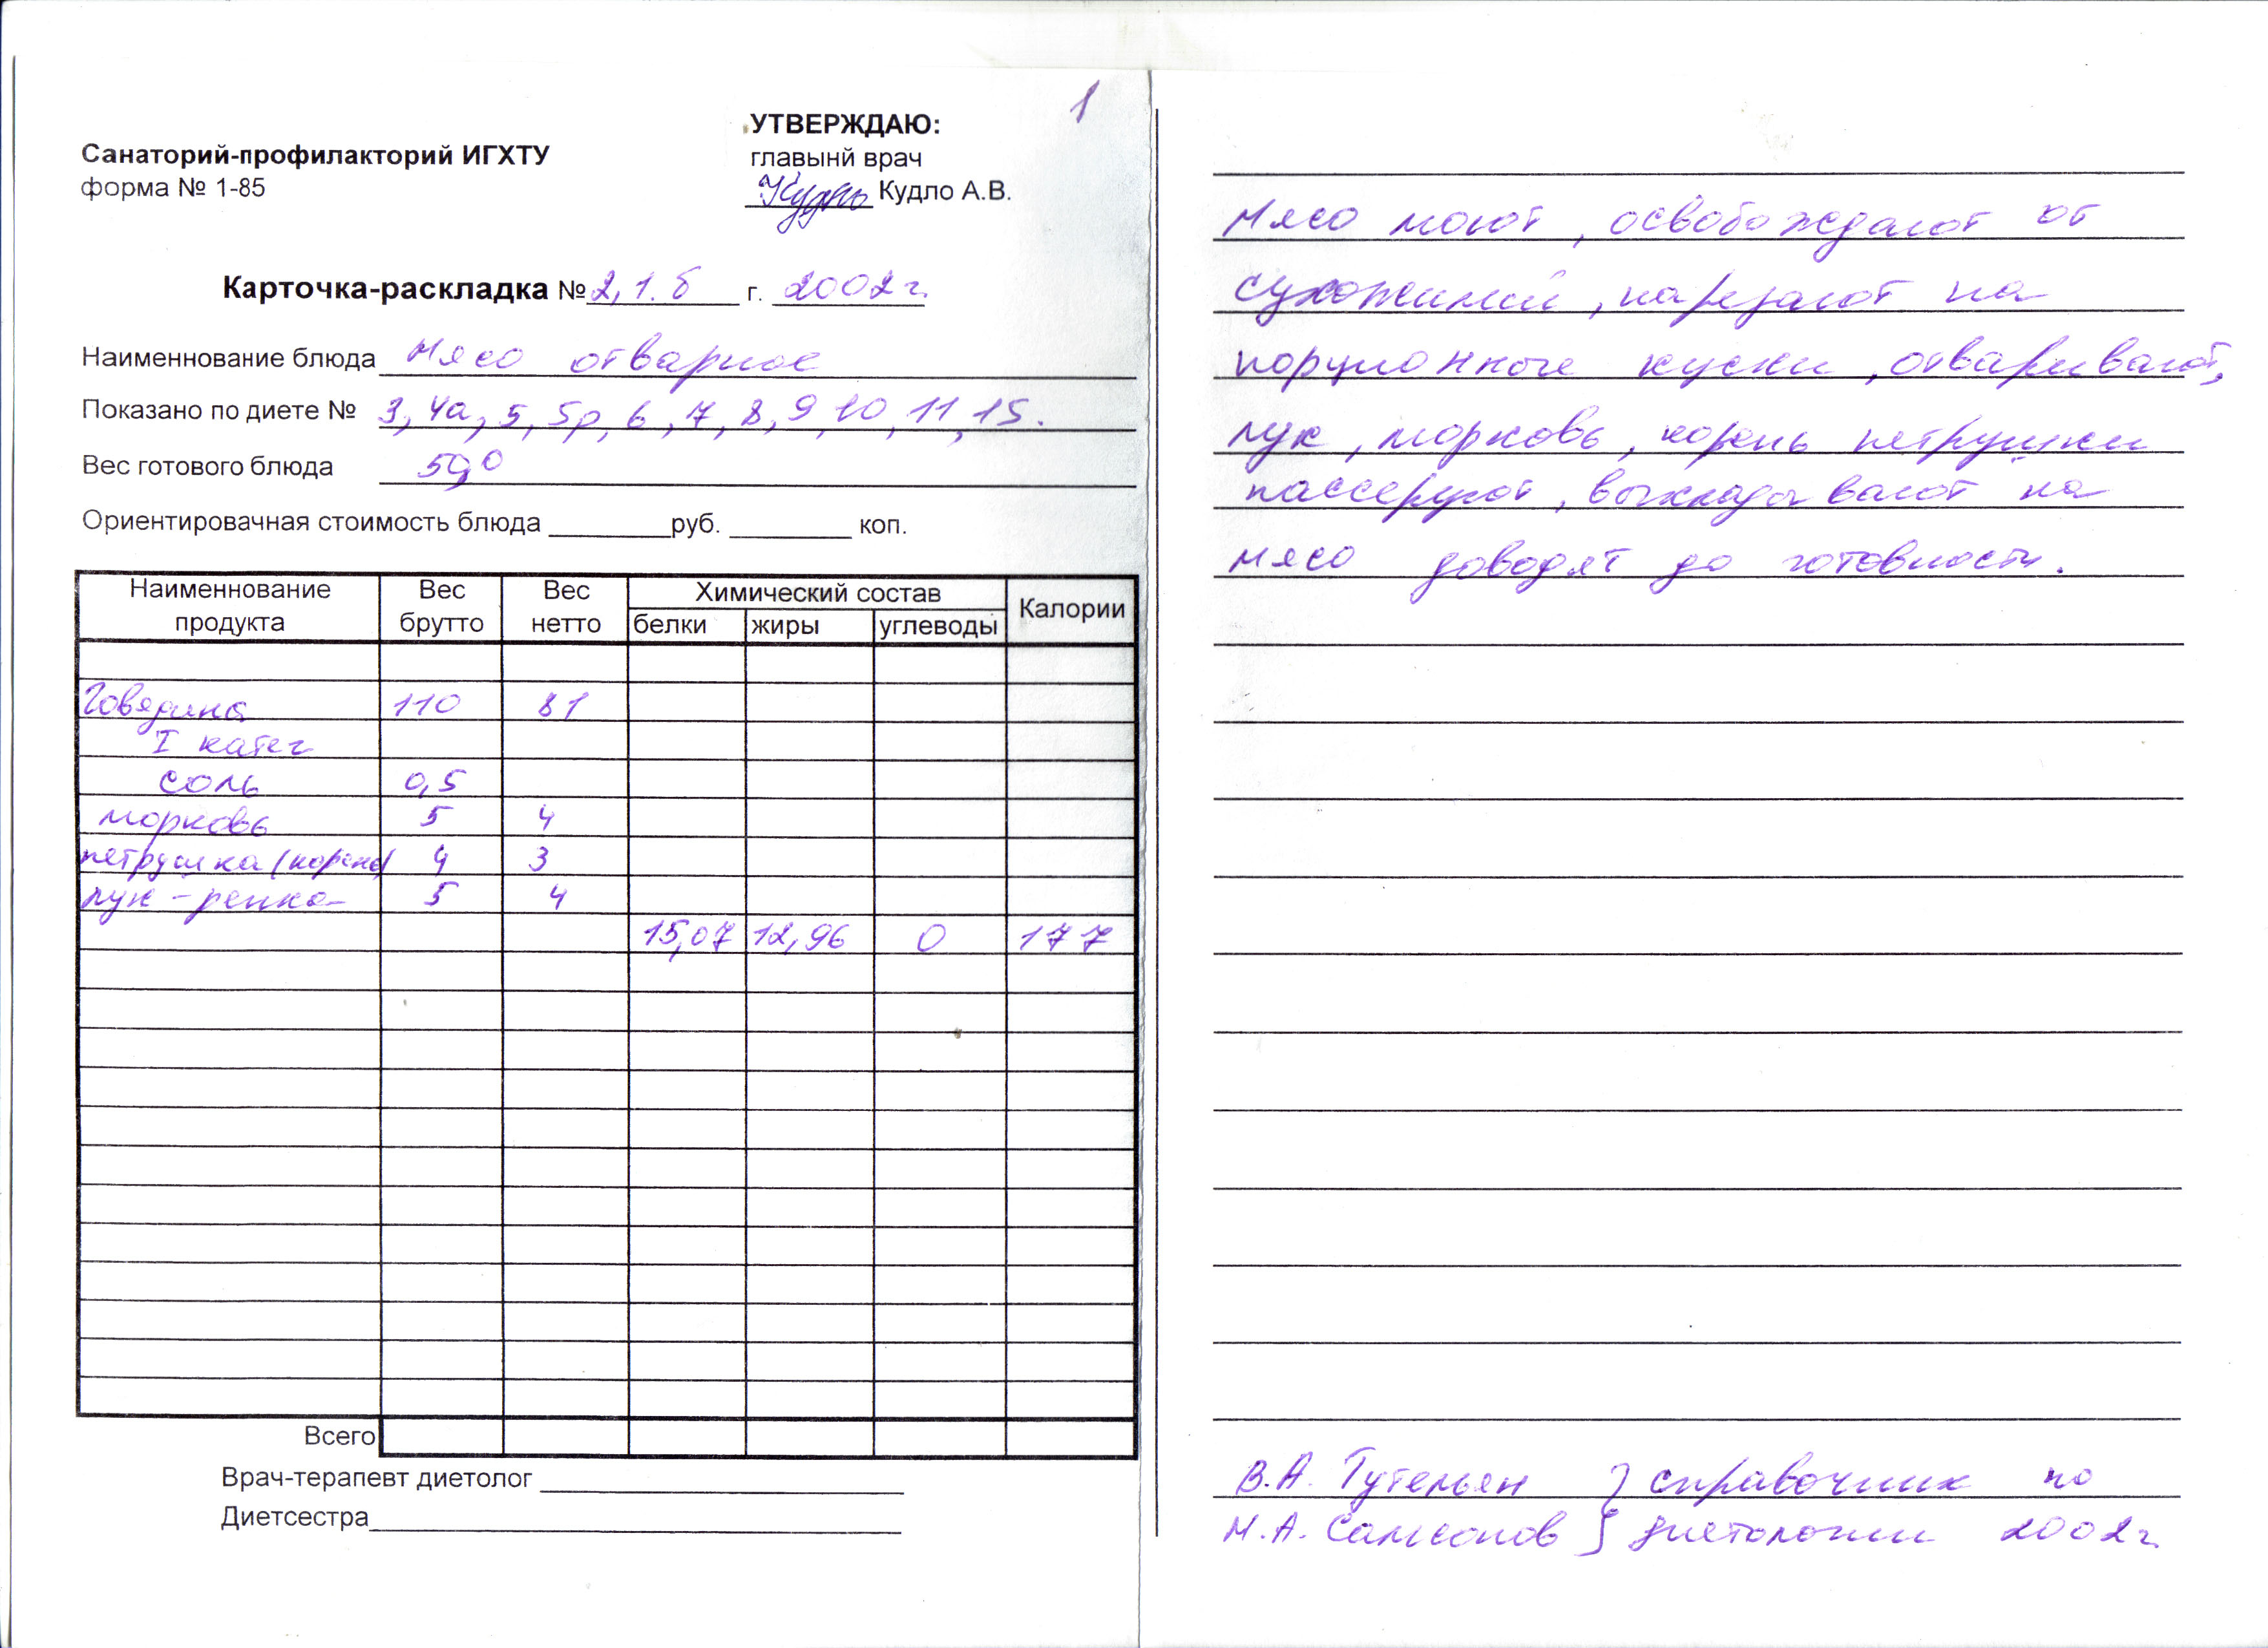 1
УТВЕРЖДАЮ:
Санаторий-профилакторий ИГХТУ
главынй врач
форма № 1-85
Кудло А.В.
Карточка-раскладка № 2,1.б г. 2002г.
Наименнование блюда Мясо отварное
Показано по диете № 3, 4а, 5, 5р, 6, 7, 8, 9, 10, 11, 15.
Вес готового блюда 50,0
Ориентировачная стоимость блюда ________руб. ________ коп.
Наименнование продукта Вес брутто Вес нетто Химический состав Калории
белки жиры углеводы
Говядина 110 81
I катег
соль 0,5
морковь 5 4
петрушка (корень) 4 3
лук-репка 5 4
15,07 12,96 0 177
Всего
Врач-терапевт диетолог
Диетсестра
Мясо моют, освобождают от
сухожилий, нарезают на
порционные куски, отваривают,
лук, морковь, корень петрушки
пассеруют, выкладывают на
мясо доводят до готовности.
В.А. Тутельян } справочник по
М.А. Самсонов } диетологии 2002г.